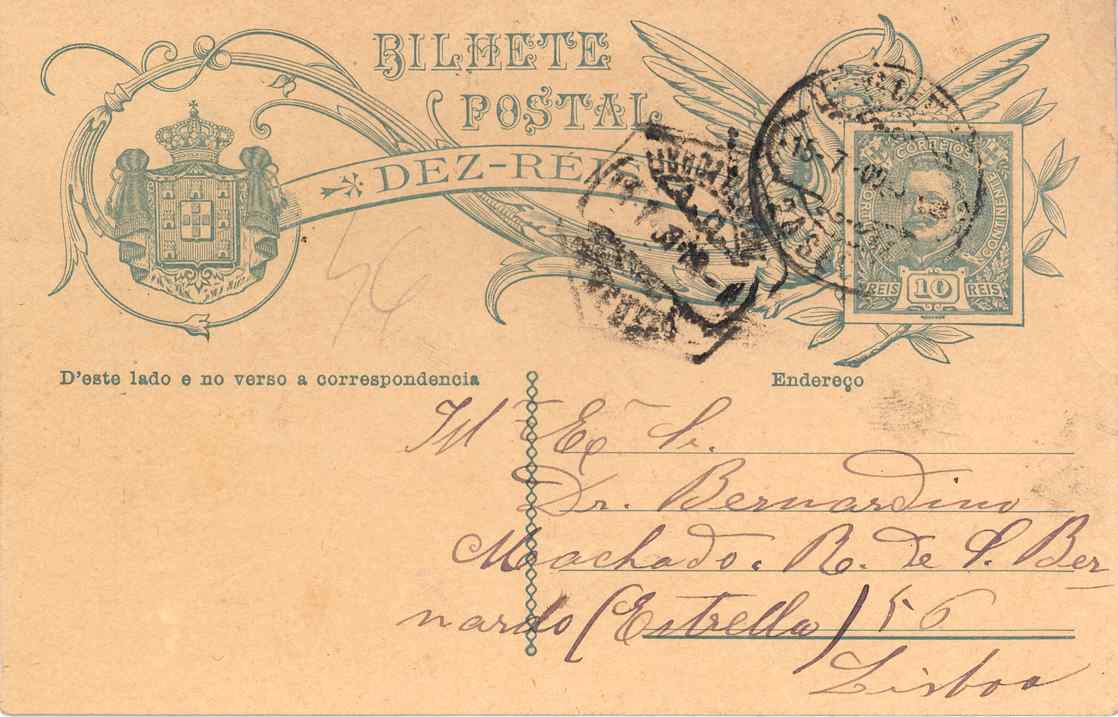 BILHETE
POSTAL
DEZ-RÉIS
CORREIO
CONTINENTE
REIS 10 REIS
15-7
56
D'este lado e no verso a correspondencia
Endereço
Ill.mo Ex.mo S.
Dr. Bernardino
Machado. R. de S. Ber-
nardo (Estrella) 56
Lisboa